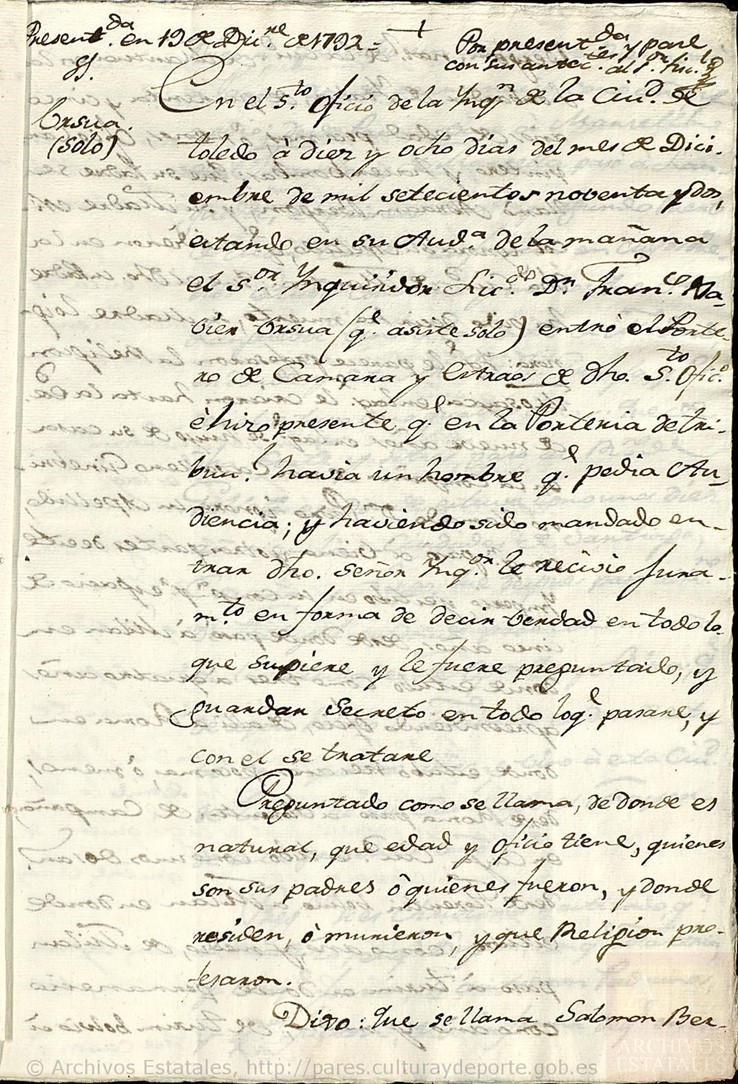 Present.da en 19 de Dic.re de 1792=
SS.
Ursua.
(solo)
Por present.da y pase
con sus antec.tes al S.or Fis.l
En el S.to Oficio de la Ynq.n de la Ciu.d de
toledo à diez y ocho dias del mes de Dici-
embre de mil setecientos noventa y dos,
estando en su Aud.a de la mañana
el S.or Ynquis̃idor Lic.do D.n Fran.co Xa-
bier Ursua (q.e asiste solo) entrò el Porte-
ro de Camara y Estraos de dho. S.to Ofic.o
è hizo presente q.e en la Porteria de tri-
bun.l havia un hombre q.e pedia Au-
diencia; y haviendo sido mandado en-
trar dho. señor Ynq.or le recivio jura-
m.to en forma de decir berdad en todo lo
que supiere y le fuere preguntado, y
guardar Secreto en todo loq.e pasare, y
con el se tratare
Preguntado como se llama, de donde es
natural, que edad y oficio tiene, quienes
son sus padres ò quienes fueron, y donde
residen, ò murieron, y que Religion pro-
fesaron.
Dixo: Que se llama Salomon Ber-
© Archivos Estatales, http://pares.culturaydeporte.gob.es
ARCHIVOS
ESTATALES